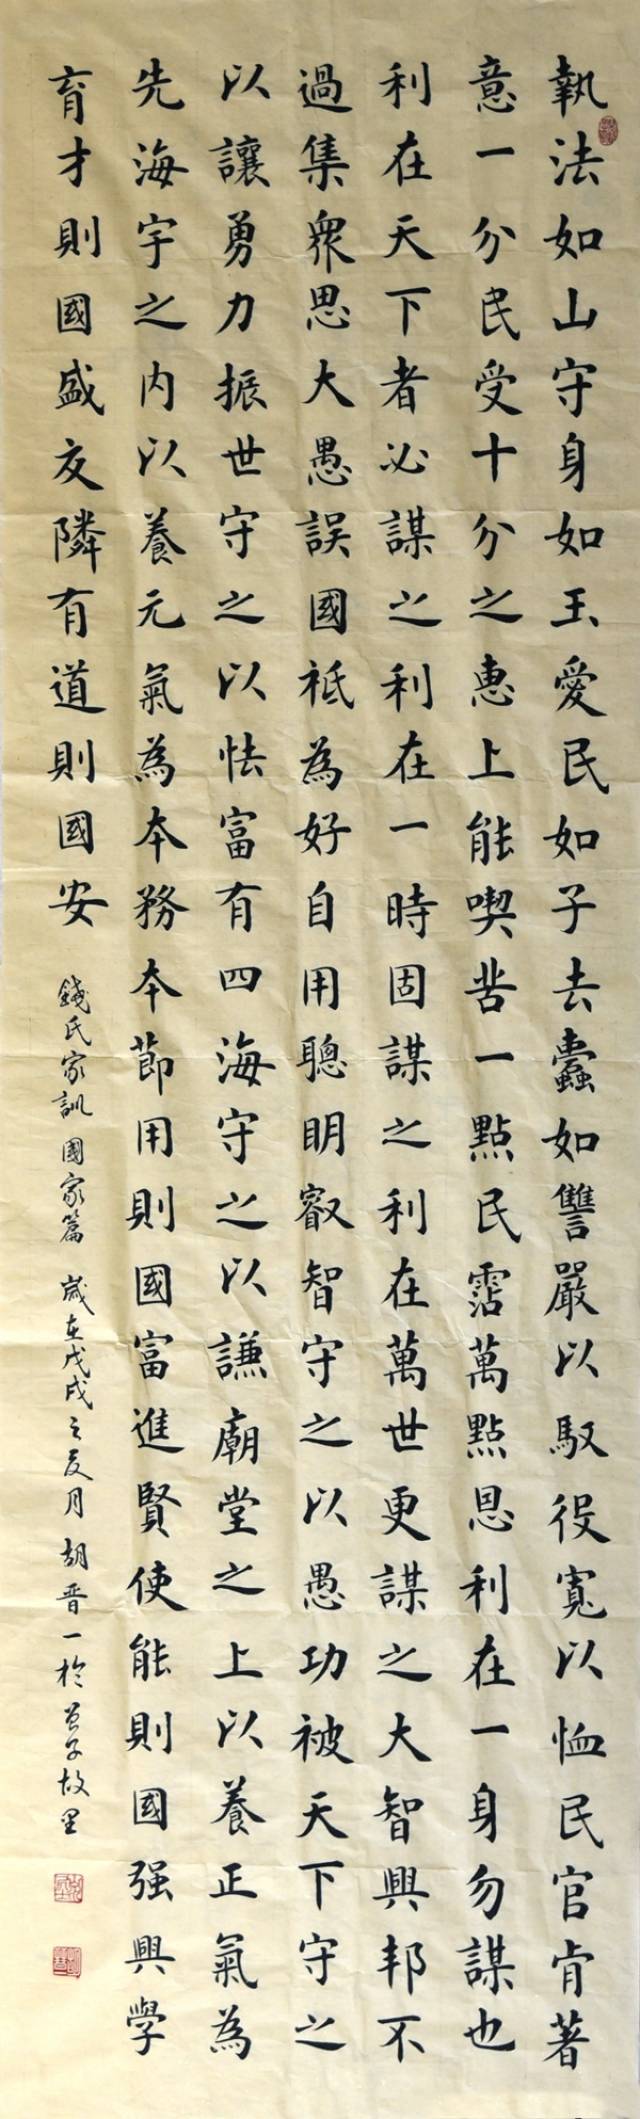 執法如山守身如玉愛民如子去蠹如讐嚴以馭役寬以恤民官肯著
意一分民受十分之惠上能喫苦一點民霑萬點恩利在一身勿謀也
利在天下者必謀之利在一時固謀之利在萬世更謀之大智興邦不
過集衆思大愚誤國祗為好自用聰明叡智守之以愚功被天下守之
以讓勇力振世守之以怯富有四海守之以謙廟堂之上以養正氣為
先海宇之内以養元氣為本務本節用則國富進賢使能則國强興學
育才則國盛友隣有道則國安
錢氏家訓 國家篇 歲在戊戌之夏月 胡晋一於曾子故里